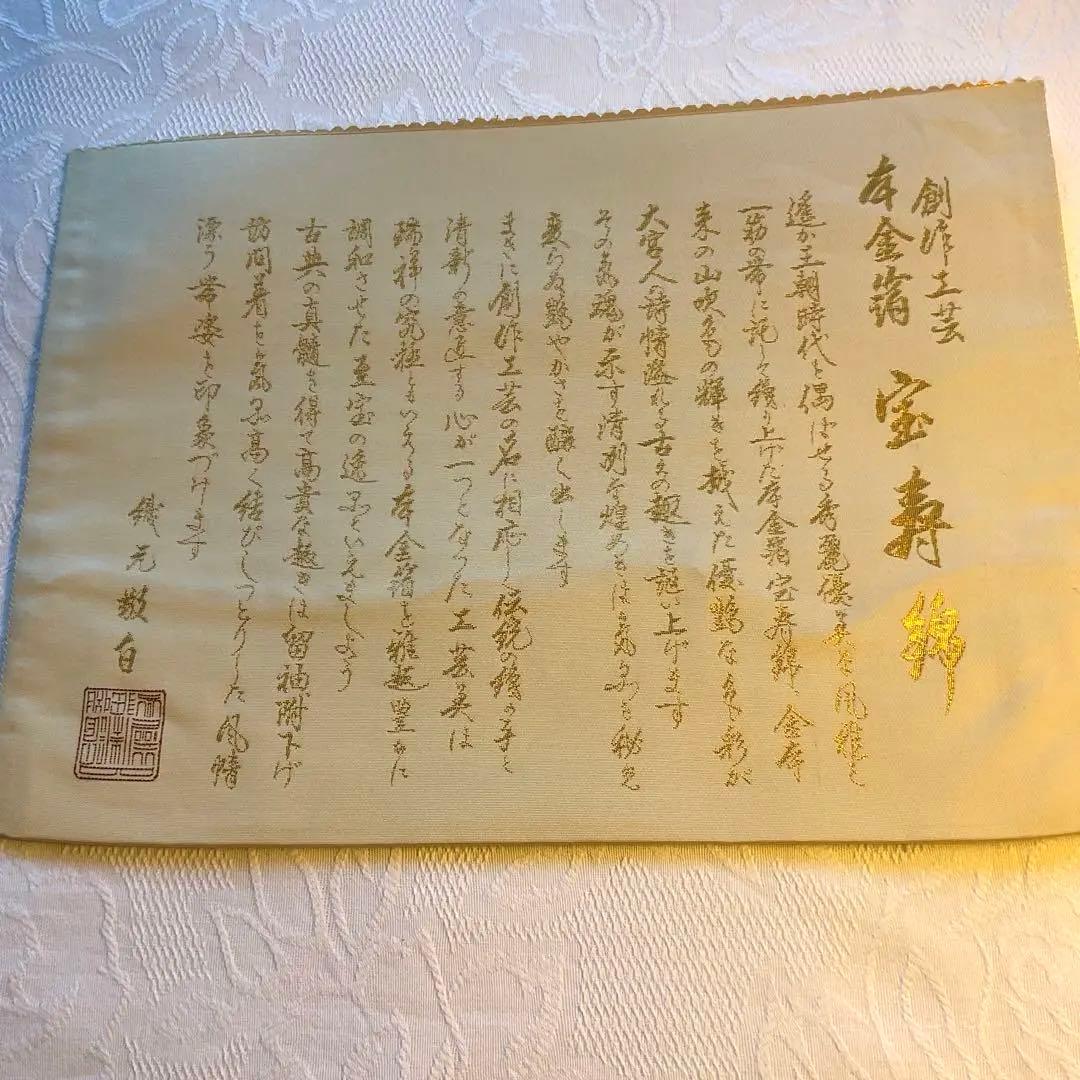 創作工芸
本金箔 宝寿錦
遙か王朝時代を偲ばせる秀麗優美な風雅を
一筋の帯に託して織り上げた本金箔宝寿錦、金本
来の山吹色の輝きを越えた優艶な色彩が
大宮人の詩情溢れる古の趣きを謳い上げます
その気魂が示す清冽な煌めきは気品ある秘色
変らぬ艶やかさを醸し出します
まさに創作工芸の名に相応しく伝統の織の手と
清新の意匠する心が一つとなった工芸美は
瑞祥の究極ともいえる本金箔を雅趣豊かに
調和させた重宝の逸品といえましょう
古典の真髄を得て高貴な趣きは留袖附下げ
訪問着を気品高く結びしっとりした風情
漂う帯姿を印象づけます
織元 敬白